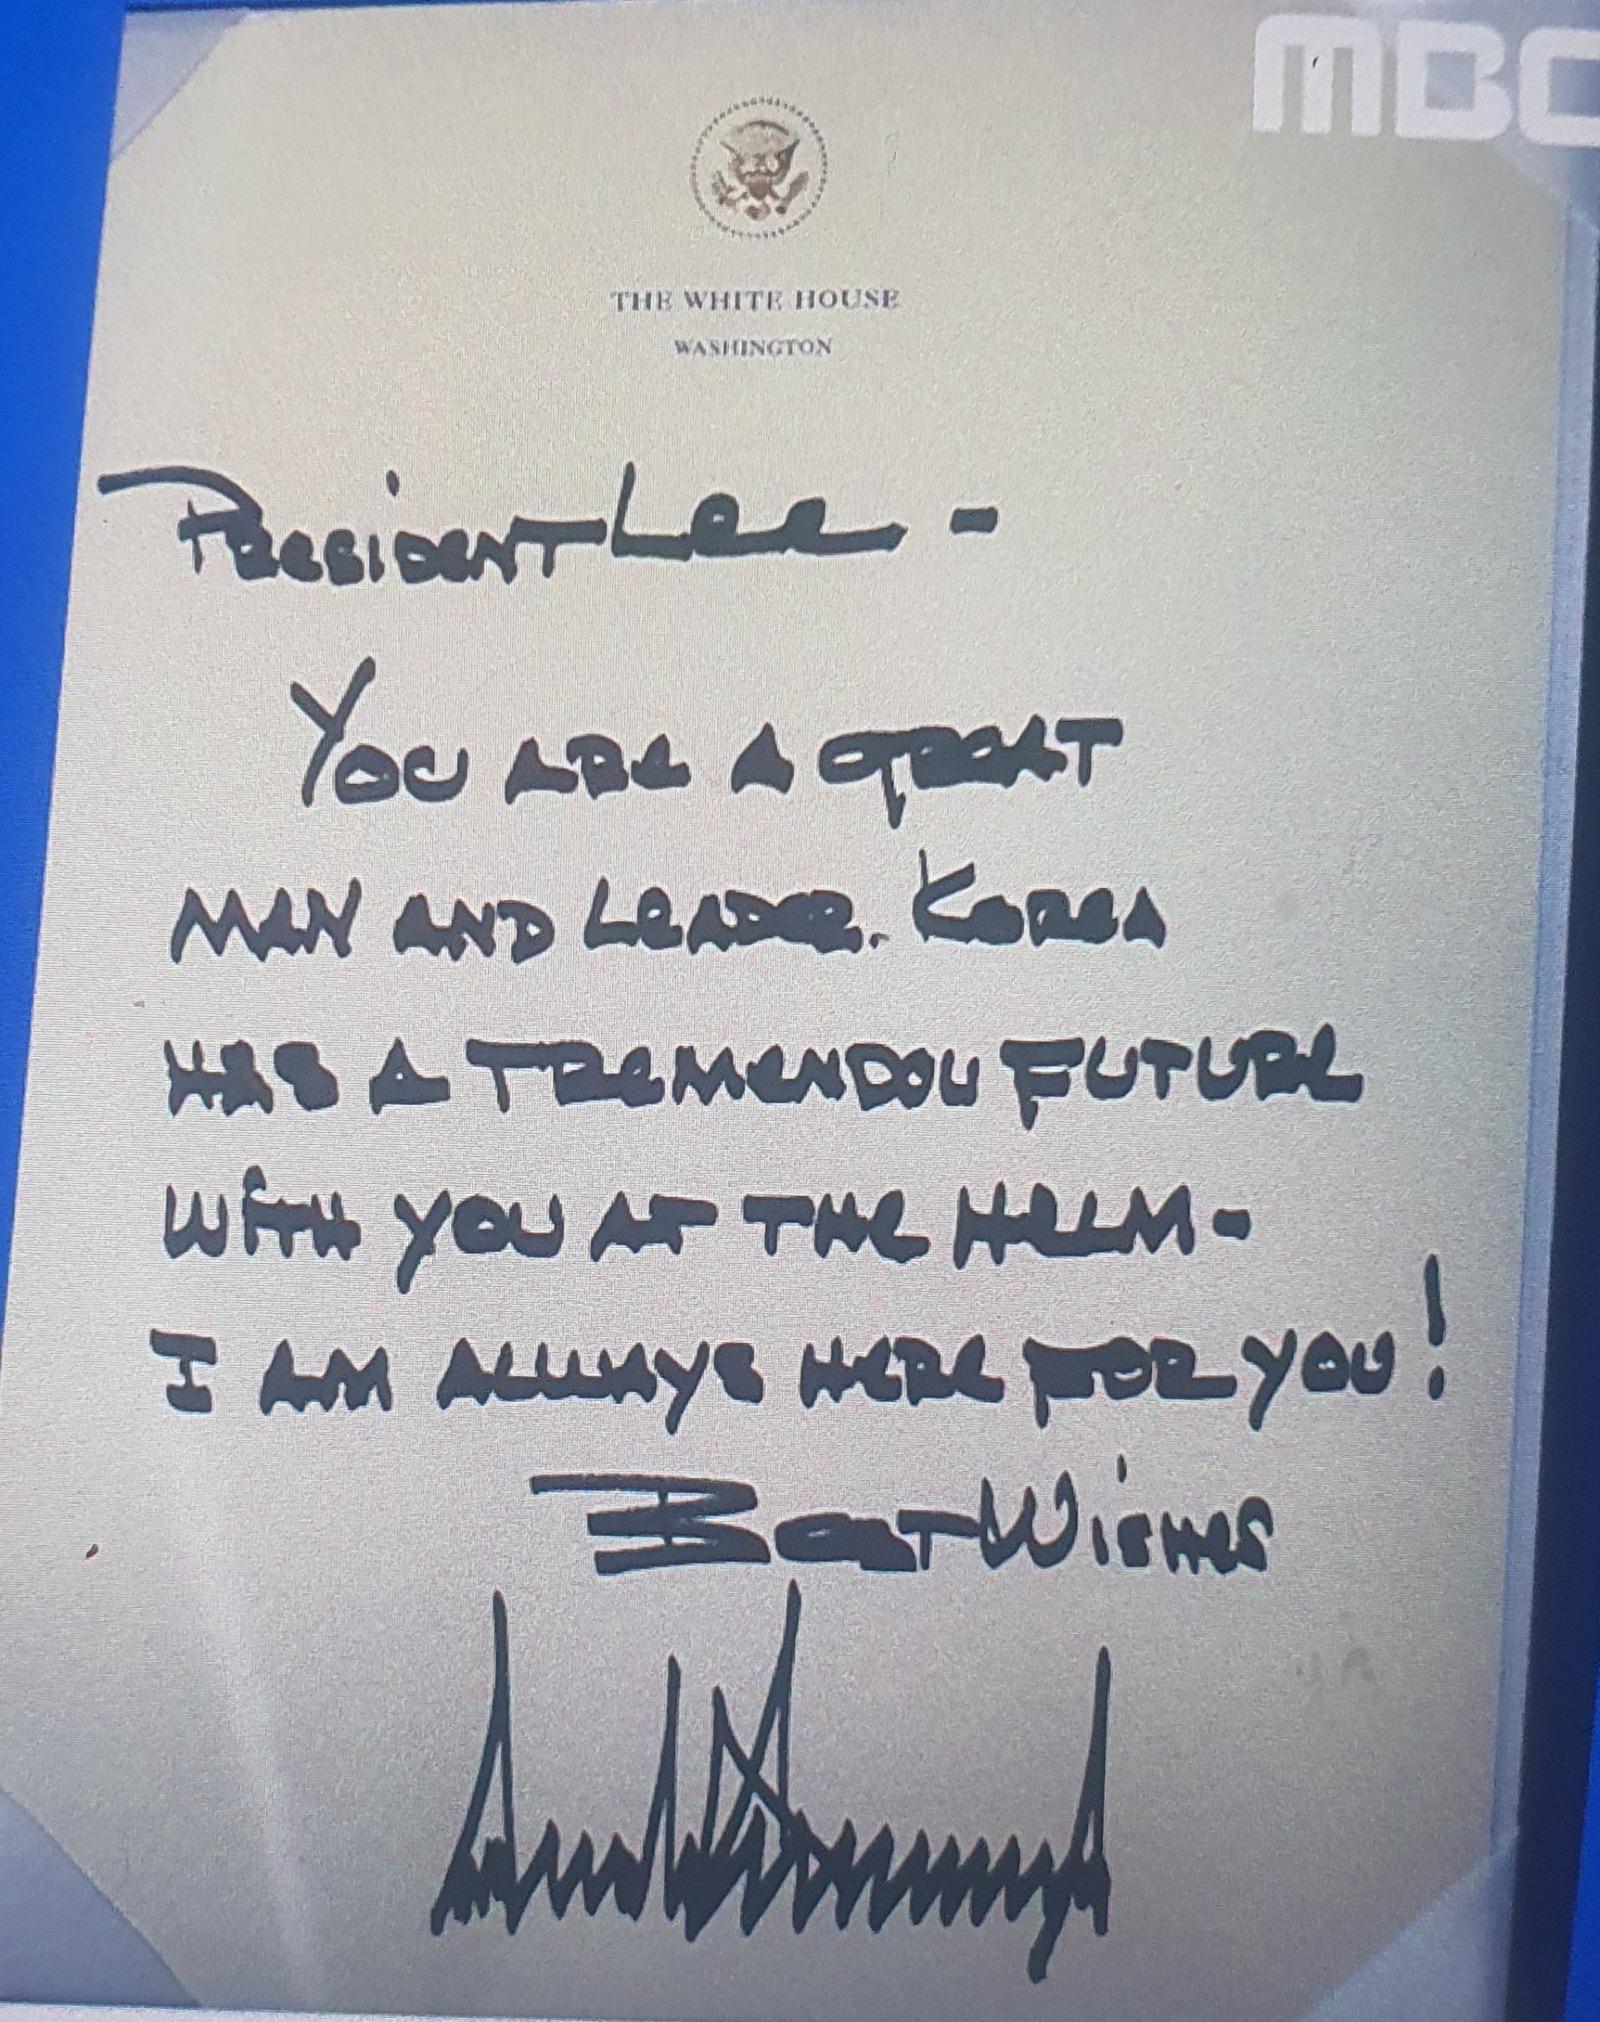 MBC
THE WHITE HOUSE
WASHINGTON
PRESIDENT LEE -
YOU ARE A GREAT
MAN AND LEADER. KOREA
HAS A TREMENDOU FUTURE
WITH YOU AT THE HELM -
I AM ALWAYS HERE FOR YOU!
BEST WISHES